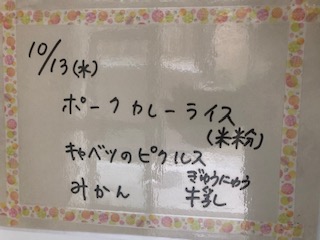 10/13(水)
ポークカレーライス
(米粉)
キャベツのピクルス
みかん ぎゅうにゅう
牛乳